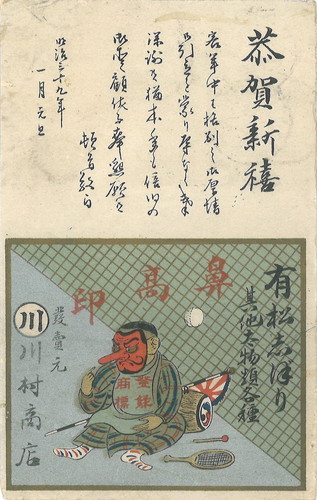 恭賀新禧
客年中は格別之御厚情
御引立を蒙り
深謝候猶本年も倍旧の
御愛顧伏而奉懇願候
頓首敬白
明治三十九年
一月元旦
有松志ぼり
其他太物類各種
鼻高印
登録
商標
發賣元
川川村商店